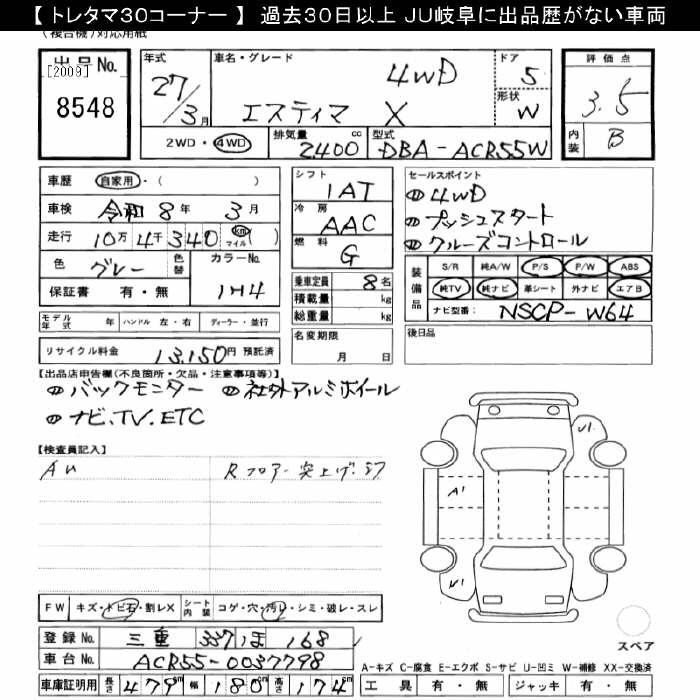 【 トレタマ30コーナー 】 過去30日以上 JU岐阜に出品歴がない車両
(複合機)対応用紙
出品No.
[2009]
8548
年式 車名・グレード ドア 形状
27/3月 エスティマ 4WD X 5 W
2WD・4WD 排気量 2400 cc 型式 DBA-ACR55W
評価点 3.5
内装 B
車歴 自家用・( )
車検 令和8年 3月
走行 10万4千340 km マイル ( )
色 グレー 色替 カラーNo. 1H4
保証書 有・無
モデル年式 年 ハンドル 左・右 ディーラー・並行
リサイクル料金 13,150円 預託済
シフト 1AT
冷房 AAC
燃料 G
乗車定員 8名
積載量 kg
総重量 kg
名変期限 月 日
セールスポイント
①4WD
②プッシュスタート
③クルーズコントロール
装備品 S/R 純A/W P/S P/W ABS
純TV 純ナビ 革シート 外ナビ エアB
ナビ型番: NSCP-W64
後日品
【出品店申告欄(不良箇所・欠品・注意事項等)】
①バックモニター ③社外アルミホイール
②ナビ、TV.ETC
【検査員記入】
Rフロアー突上げ
U1
A1
FW キズ・トビ石・割レX シート内装 コゲ・穴・汚レ・シミ・破レ・スレ
登録No. 三重 337 ほ 168
車台No. ACR55-0037798
車庫証明用 長さ 479cm 幅 180cm 高さ 174cm
スペア
A-キズ C-腐食 E-エクボ S-サビ U-凹ミ W-補修 XX-交換済
工具 有・無 ジャッキ 有・無